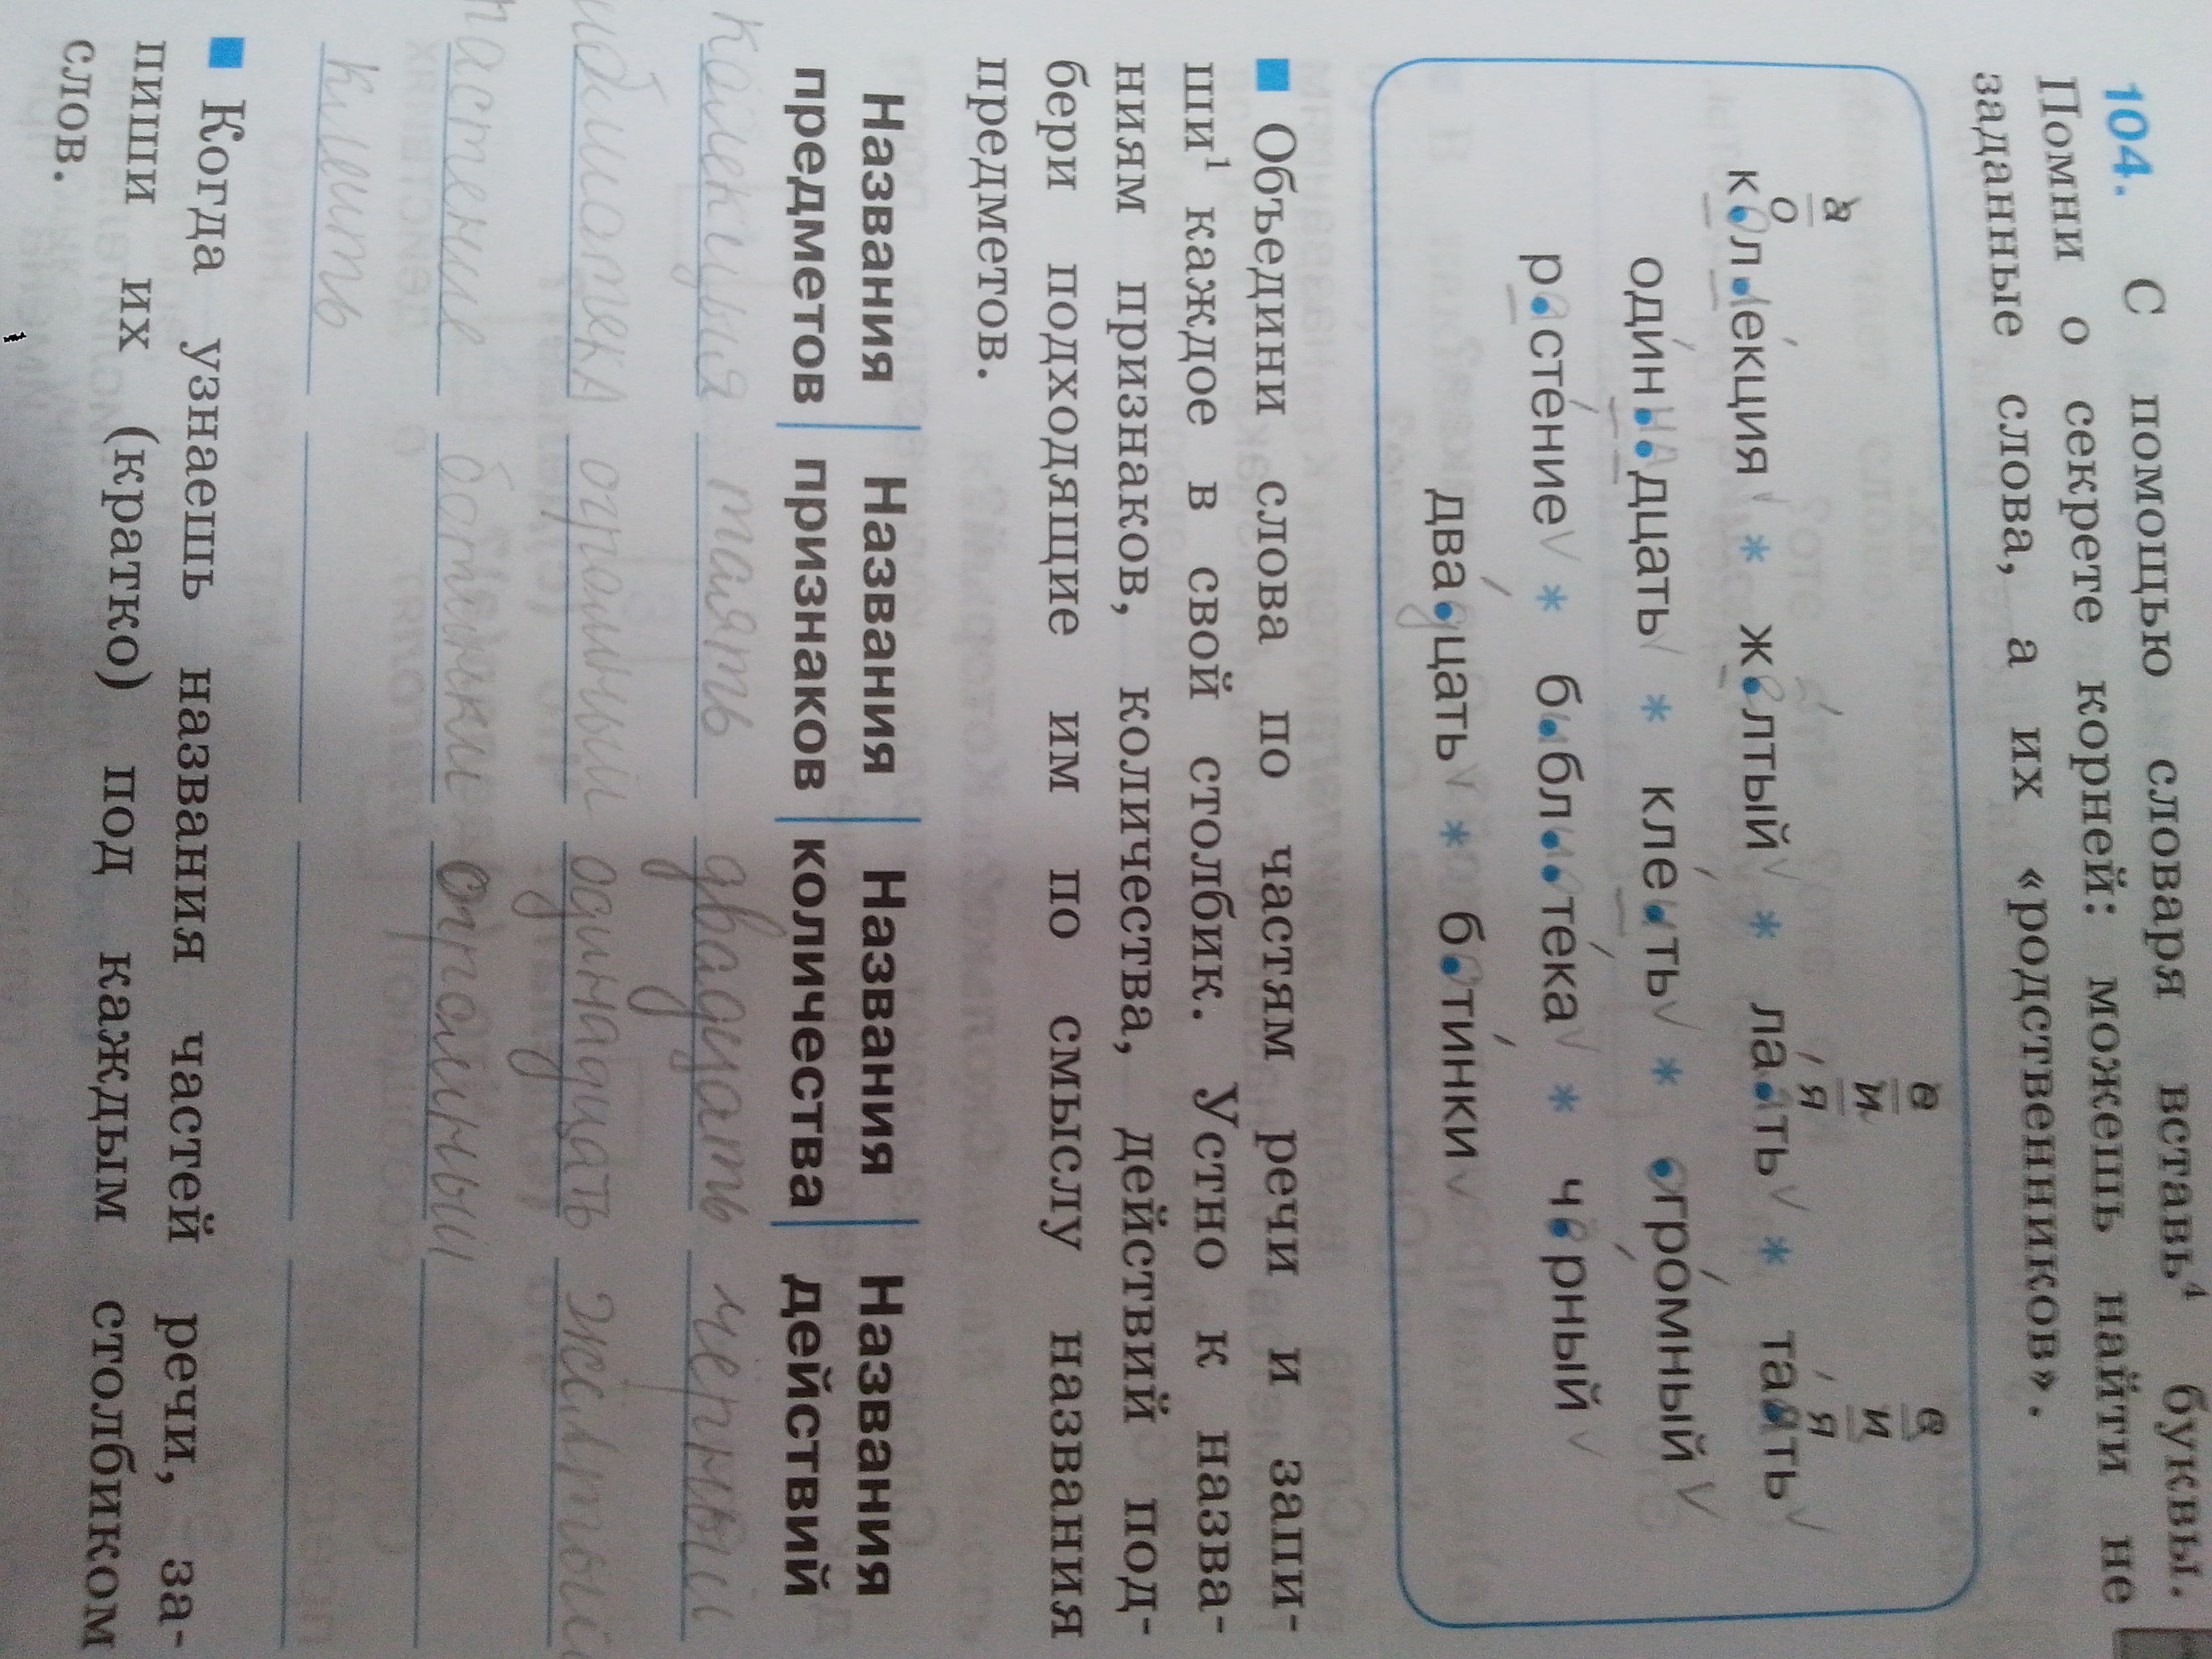 104. С помощью словаря вставь⁴ буквы.
Помни о секрете корней: можешь найти не
заданные слова, а их «родственников».
а е е
и и
о я я
кол.лекция ✓ * желтый ✓ * лаять ✓ * таять ✓
одиннадцать ✓ * клеить ✓ * огромный ✓
растение ✓ * библиотека ✓ * чёрный ✓
двадцать ✓ * ботинки ✓
■ Объедини слова по частям речи и запи-
ши¹ каждое в свой столбик. Устно к назва-
ниям признаков, количества, действий под-
бери подходящие им по смыслу названия
предметов.
Названия предметов | Названия признаков | Названия количества | Названия действий
таять двадцать чёрный
огромный одинадцать жёлтый
растение ботинки
клеить
■ Когда узнаешь названия частей речи, за-
пиши их (кратко) под каждым столбиком
слов.